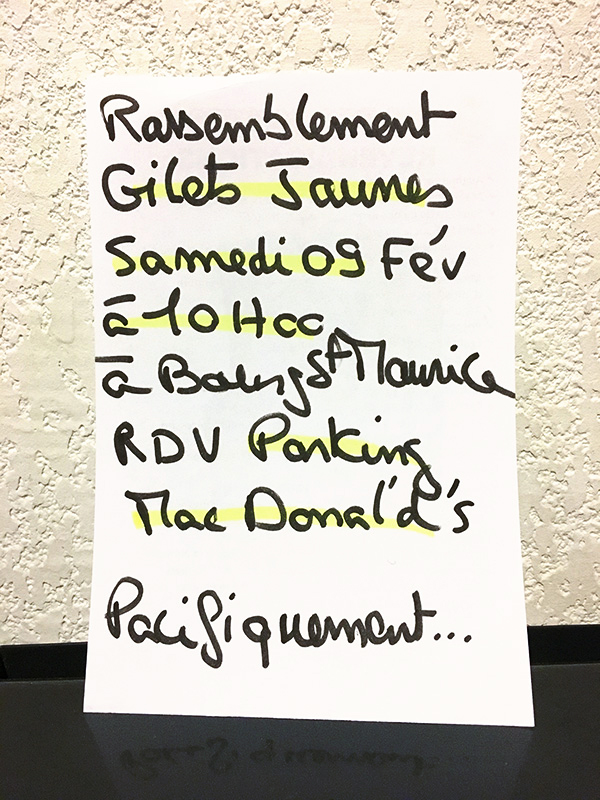 Rassemblement
Gilets Jaunes
Samedi 09 Fév
à 10H00
à Bourg St Maurice
RDV Parking
Mac Donal'd's
Pacifiquement...